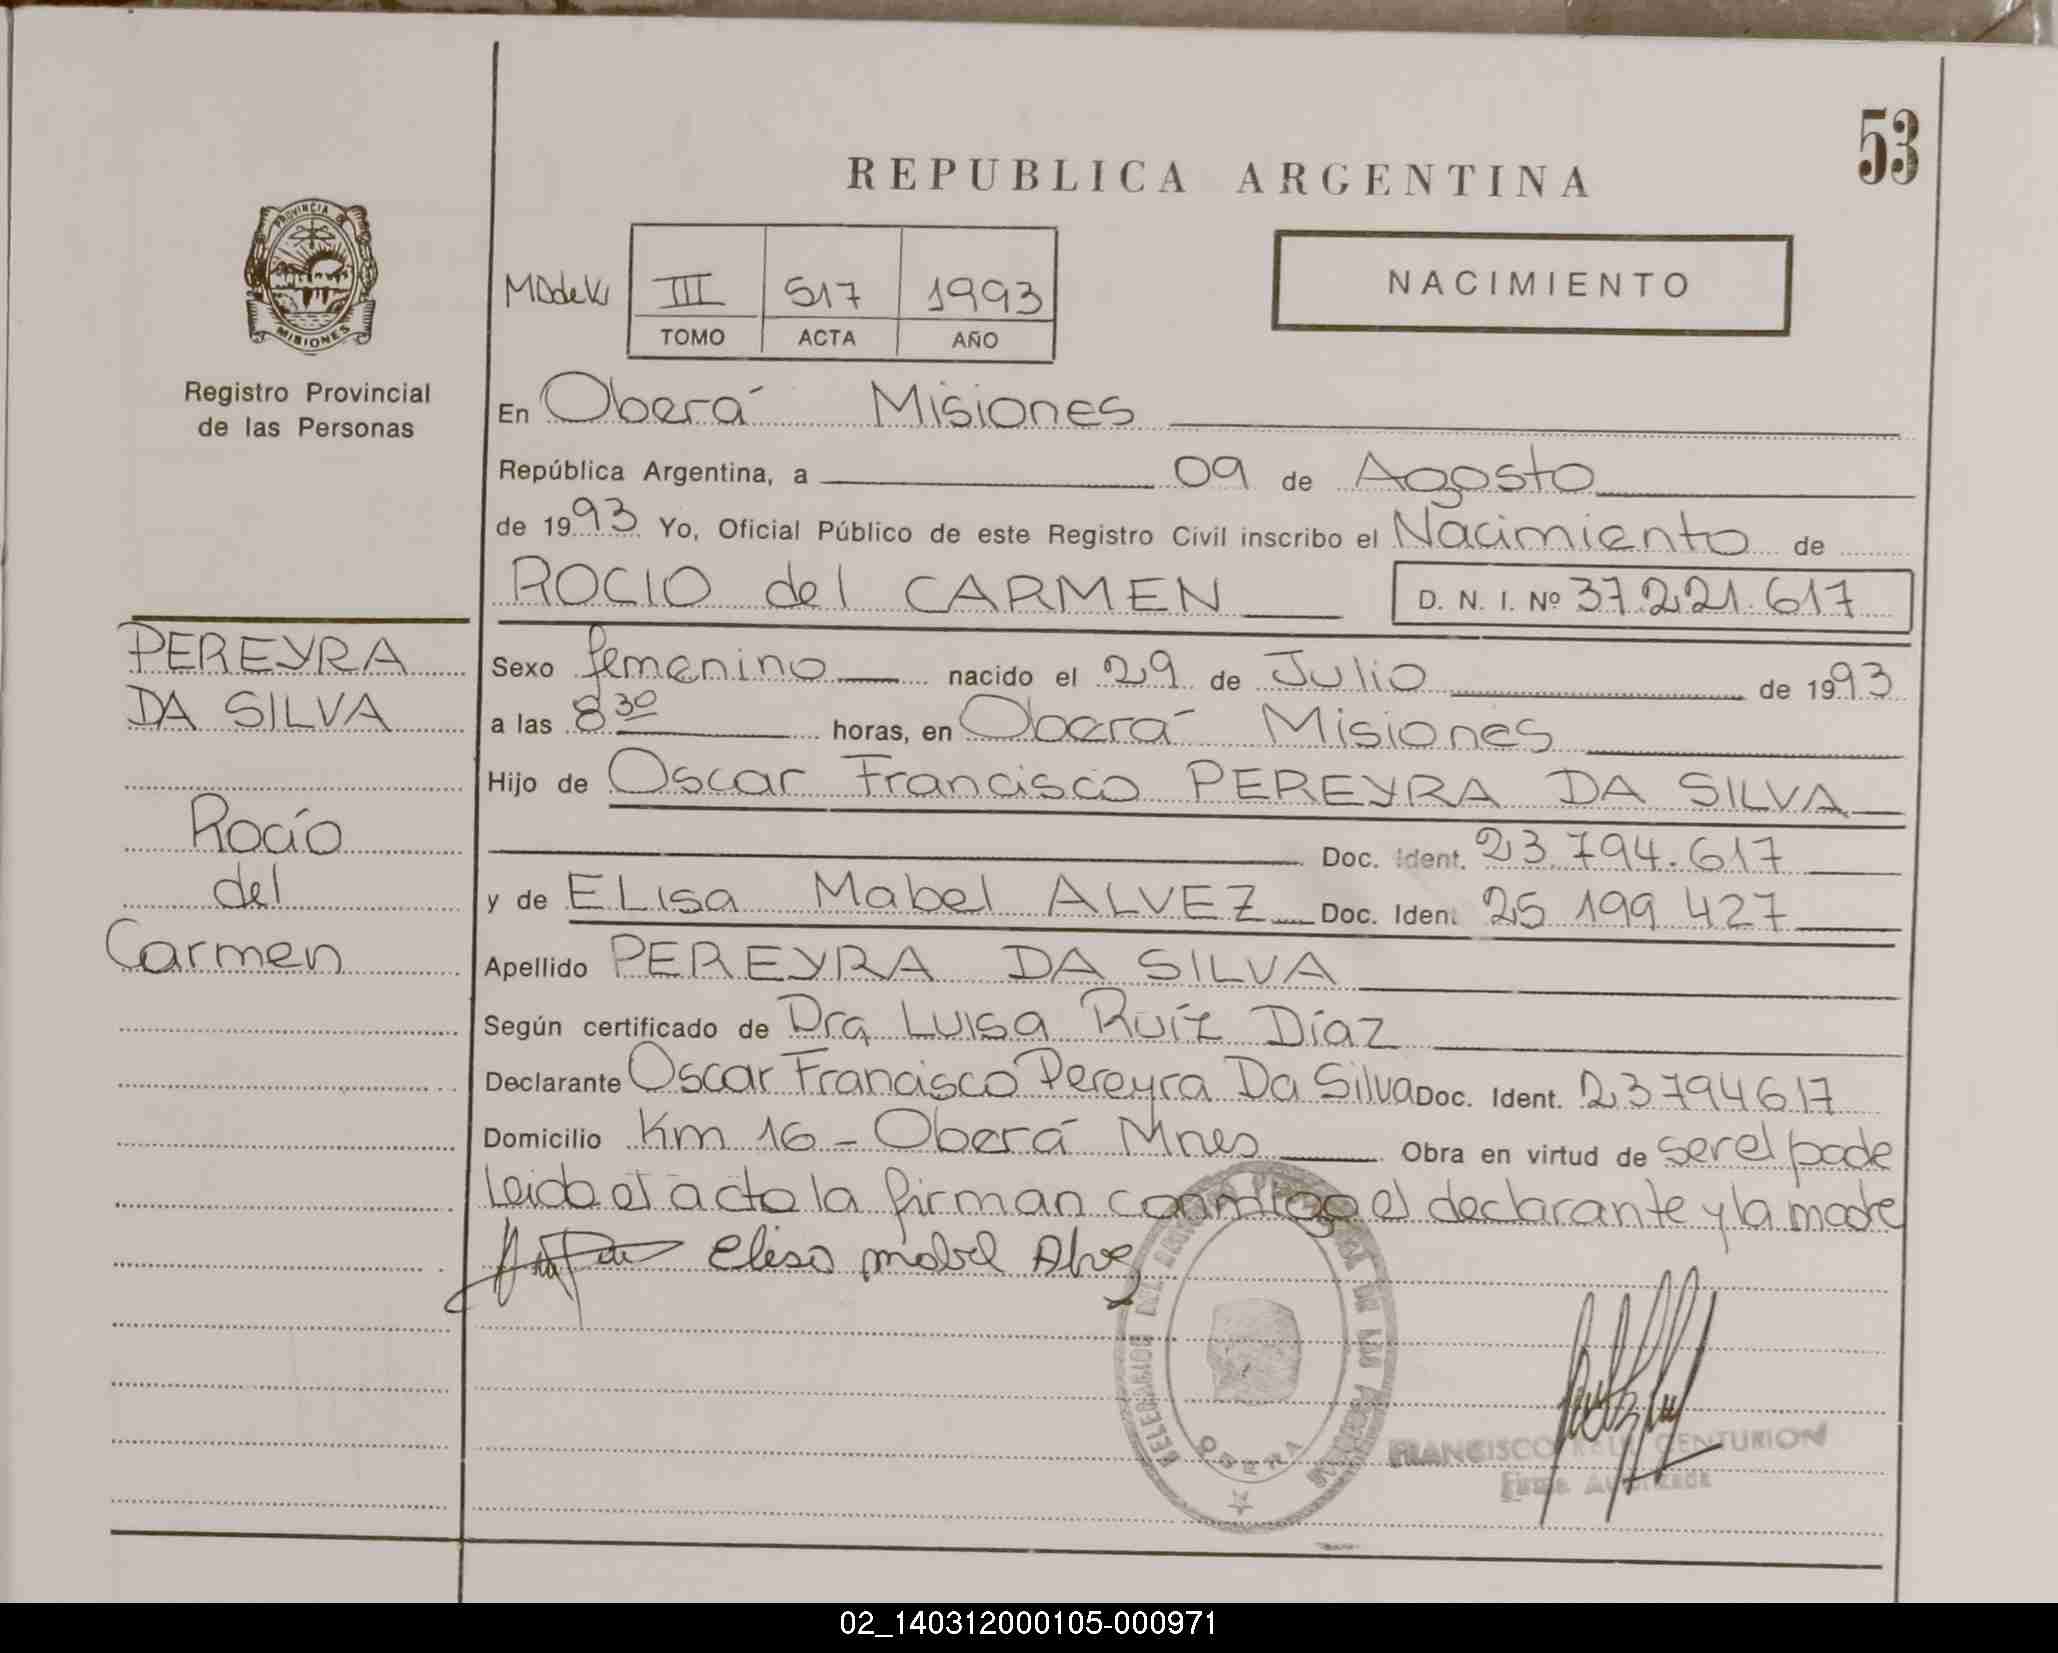 53
REPUBLICA ARGENTINA
PROVINCIA DE
MISIONES
Registro Provincial
de las Personas
III 517 1993
TOMO ACTA AÑO
NACIMIENTO
En Oberá Misiones
República Argentina, a 09 de Agosto
de 1993 Yo, Oficial Público de este Registro Civil inscribo el Nacimiento de
ROCIO del CARMEN D. N. I. Nº 37.221.617
PEREYRA
DA SILVA
Rocío
del
Carmen
Sexo femenino nacido el 29 de Julio de 1993
a las 8 30 horas, en Oberá Misiones
Hijo de Oscar Francisco PEREYRA DA SILVA
Doc. Ident. 23.794.617
y de ELisa Mabel ALVEZ Doc. Iden. 25 199 427
Apellido PEREYRA DA SILVA
Según certificado de Dra Luisa Ruíz Díaz
Declarante Oscar Francisco Pereyra Da Silva Doc. Ident. 23794617
Domicilio Km 16 - Oberá Mnes Obra en virtud de ser el pade
Leida el acto la firman conmigo el declarante y la madre
Elisa mabel Alvez
DELEGACION DEL REGISTRO PROVINCIAL DE LAS PERSONAS
OBERA
FRANCISCO RAUL CENTURION
Firma Autorizada
02_140312000105-000971